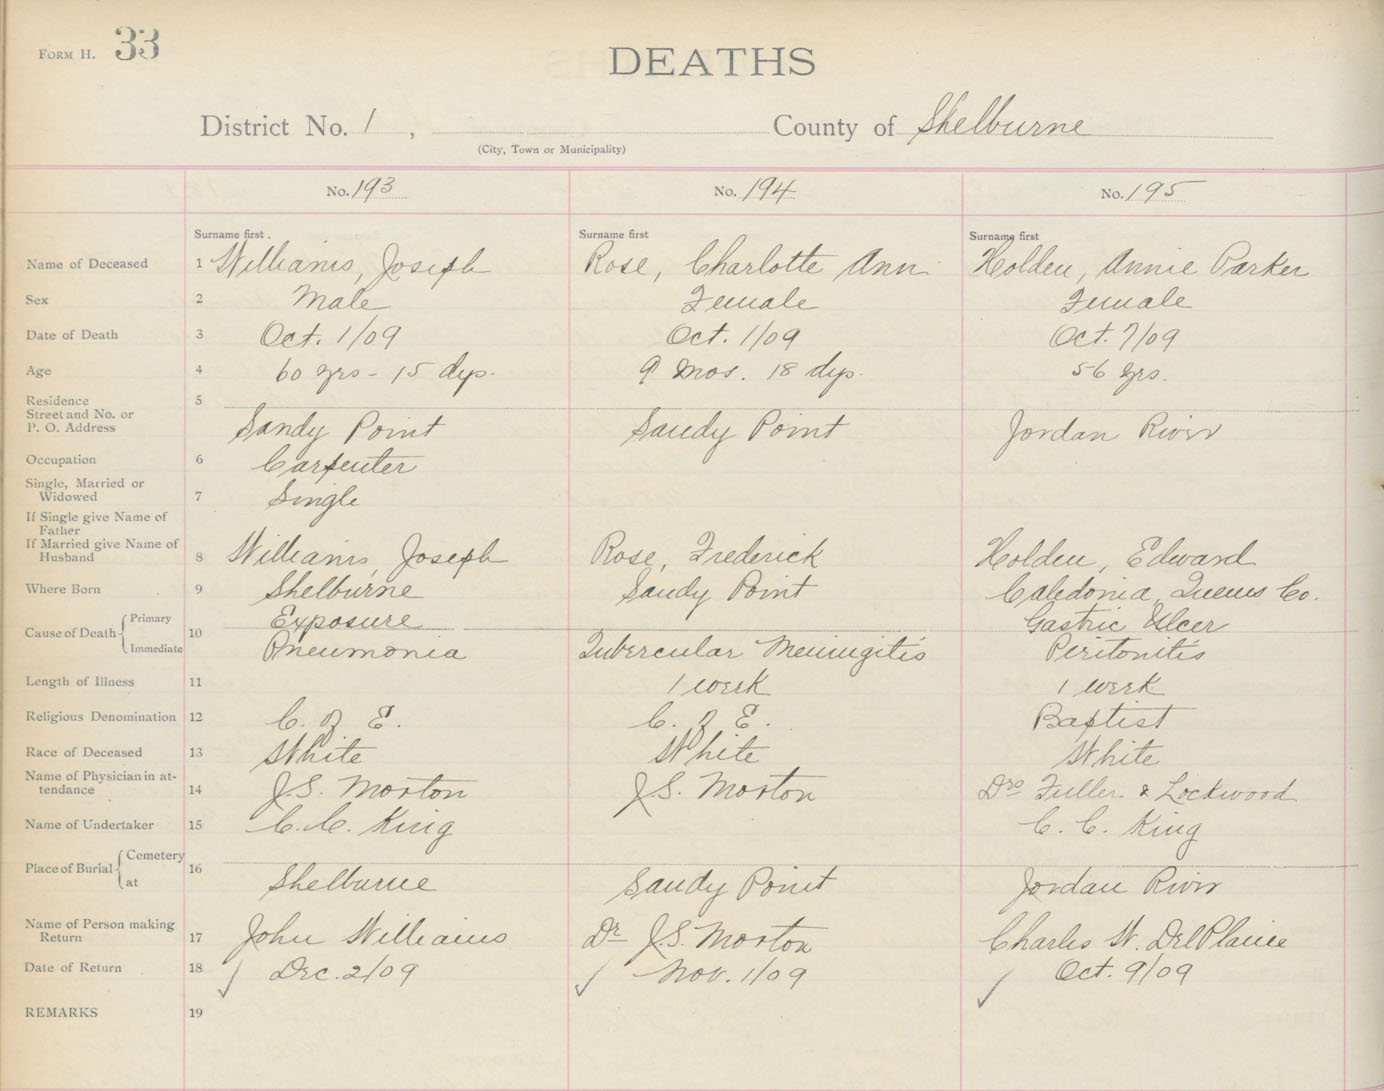 FORM H. 33
DEATHS
District No. 1 , County of Shelburne
(City, Town or Municipality)
No. 193 No. 194 No. 195
Surname first. Surname first Surname first
Name of Deceased 1 Williams, Joseph Rose, Charlotte Ann Holden, Annie Parker
Sex 2 Male Female Female
Date of Death 3 Oct. 1/09 Oct. 1/09 Oct. 7/09
Age 4 60 yrs - 15 dys. 9 Mos. 18 dys. 56 yrs.
Residence 5
Street and No. or
P. O. Address Sandy Point Sandy Point Jordan River
Occupation 6 Carpenter
Single, Married or
Widowed 7 Single
If Single give Name of
Father
If Married give Name of
Husband 8 Williams, Joseph Rose, Frederick Holden, Edward
Where Born 9 Shelburne Sandy Point Caledonia, Queens Co.
Cause of Death Primary Exposure Gastric Ulcer
10 Immediate Pneumonia Tubercular Meningitis Peritonitis
Length of Illness 11 1 week 1 week
Religious Denomination 12 C. of E. C. of E. Baptist
Race of Deceased 13 White White White
Name of Physician in at-
tendance 14 J.S. Morton J.S. Morton Drs Fuller & Lockwood
Name of Undertaker 15 C. C. King C. C. King
Place of Burial Cemetery 16
at Shelburne Sandy Point Jordan River
Name of Person making
Return 17 John Williams Dr J.S. Morton Charles W. DelPlaine
Date of Return 18 Dec. 2/09 Nov. 1/09 Oct. 9/09
REMARKS 19